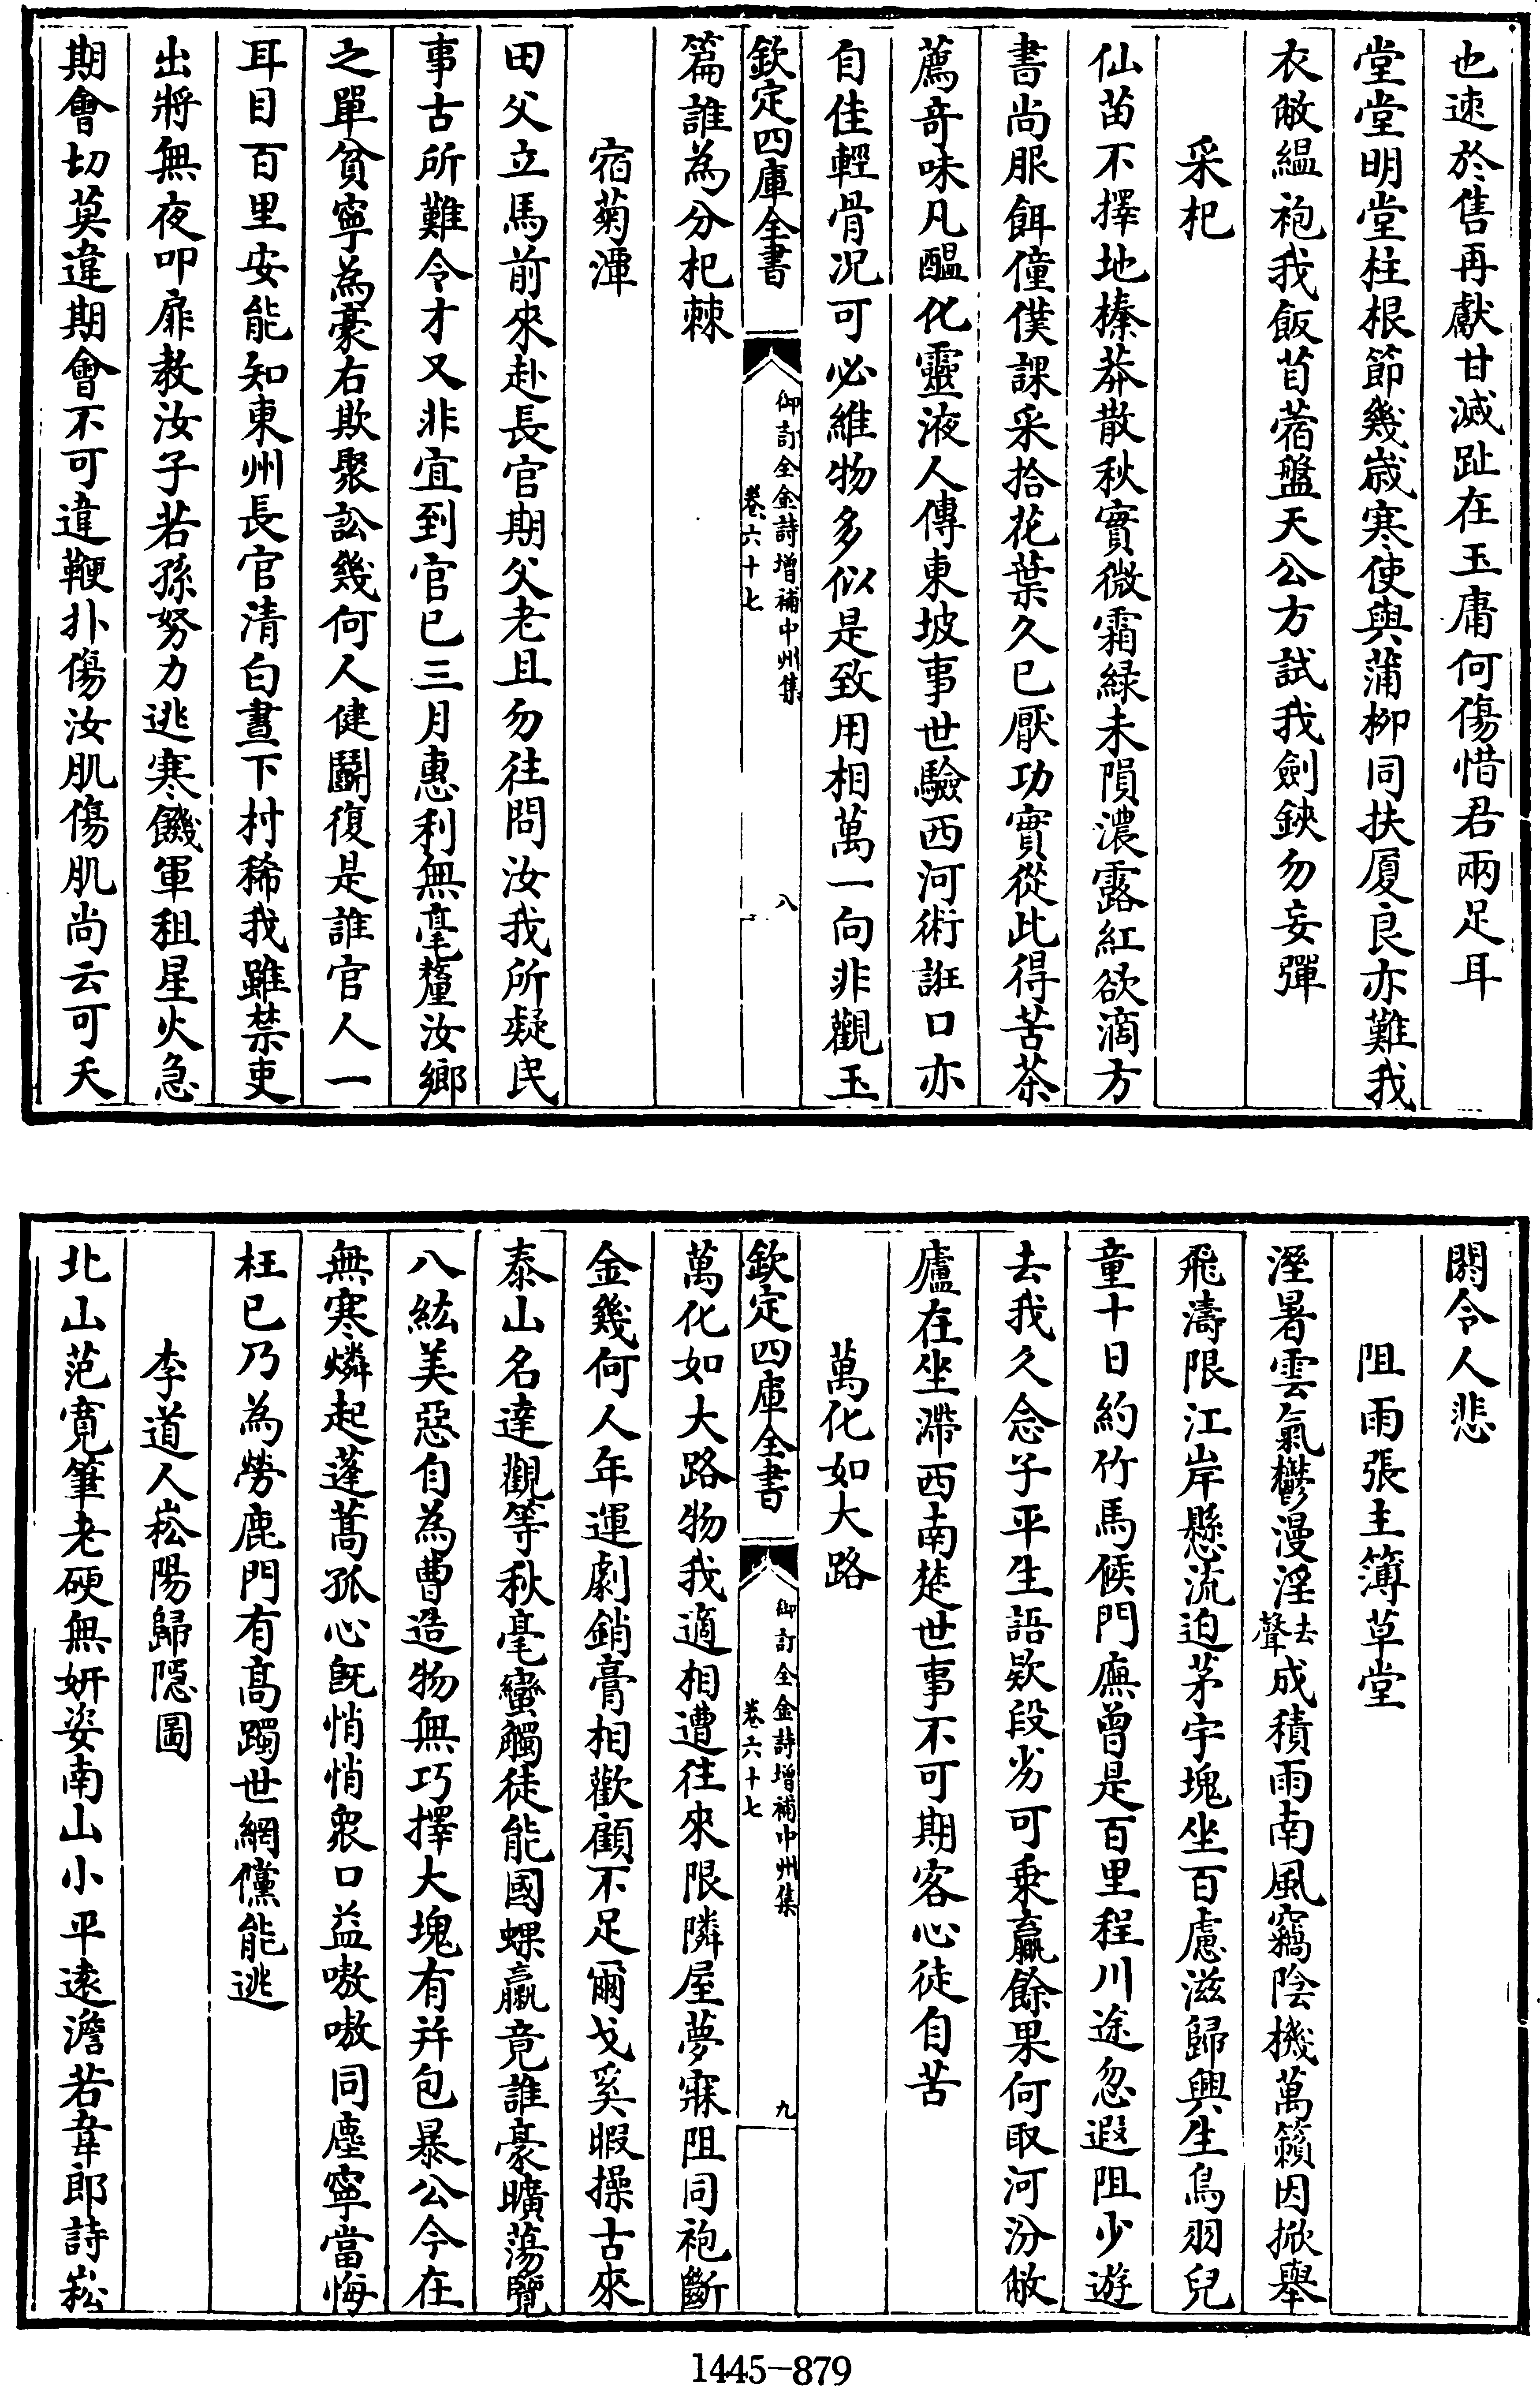 也速於售再獻甘滅趾在玉庸何傷惜君兩足耳
堂堂明堂柱根節幾歳寒使與蒲柳同扶厦良亦難我
衣敝緼袍我飯苜蓿盤天公方試我劍鋏勿妄彈
采杞
仙苗不擇地榛莽散秋實微霜緑未隕濃露紅欲滴方
書尚服餌僮僕課采拾花葉久已厭功實從此得苦茶
薦竒味凡醖化靈液人傳東坡事世驗西河術誑口亦
自佳輕骨况可必維物多似是致用相萬一向非觀玉
欽定四庫全書
御訂全金詩增補中州集
卷六十七
八
篇誰為分杞棘
宿菊潭
田父立馬前來赴長官期父老且勿往問汝我所疑民
事古所難令才又非宜到官已三月惠利無毫釐汝鄉
之單貧寧為豪右欺聚訟幾何人健鬬復是誰官人一
耳目百里安能知東州長官清白晝下村稀我雖禁吏
出將無夜叩扉教汝子若孫努力逃寒饑軍租星火急
期會切莫違期會不可違鞭扑傷汝肌傷肌尚云可夭
閼令人悲
阻雨張主簿草堂
溼暑雲氣鬱漫淫去聲成積雨南風竊陰機萬籟因掀舉
飛濤限江岸懸流迫茅宇塊坐百慮滋歸興生鳥羽兒
童十日約竹馬候門廡曾是百里程川途忽遐阻少遊
去我久念子平生語欵段劣可乗羸餘果何取河汾敝
廬在坐滯西南楚世事不可期客心徒自苦
萬化如大路
欽定四庫全書
御訂全金詩增補中州集
卷六十七
九
萬化如大路物我適相遭往來限隣屋夢寐阻同袍斷
金幾何人年運劇銷膏相歡顧不足爾戈奚暇操古來
泰山名達觀等秋毫蠻觸徒能國蜾蠃竟誰豪曠蕩覽
八紘美惡自為曹造物無巧擇大塊有并包暴公今在
無寒燐起蓬蒿孤心既悄悄衆口益嗷嗷同塵寧當悔
枉已乃為勞鹿門有髙躅世網儻能逃
李道人崧陽歸隱圖
北山范寛筆老硬無妍姿南山小平逺澹若韋郎詩崧
1445-879